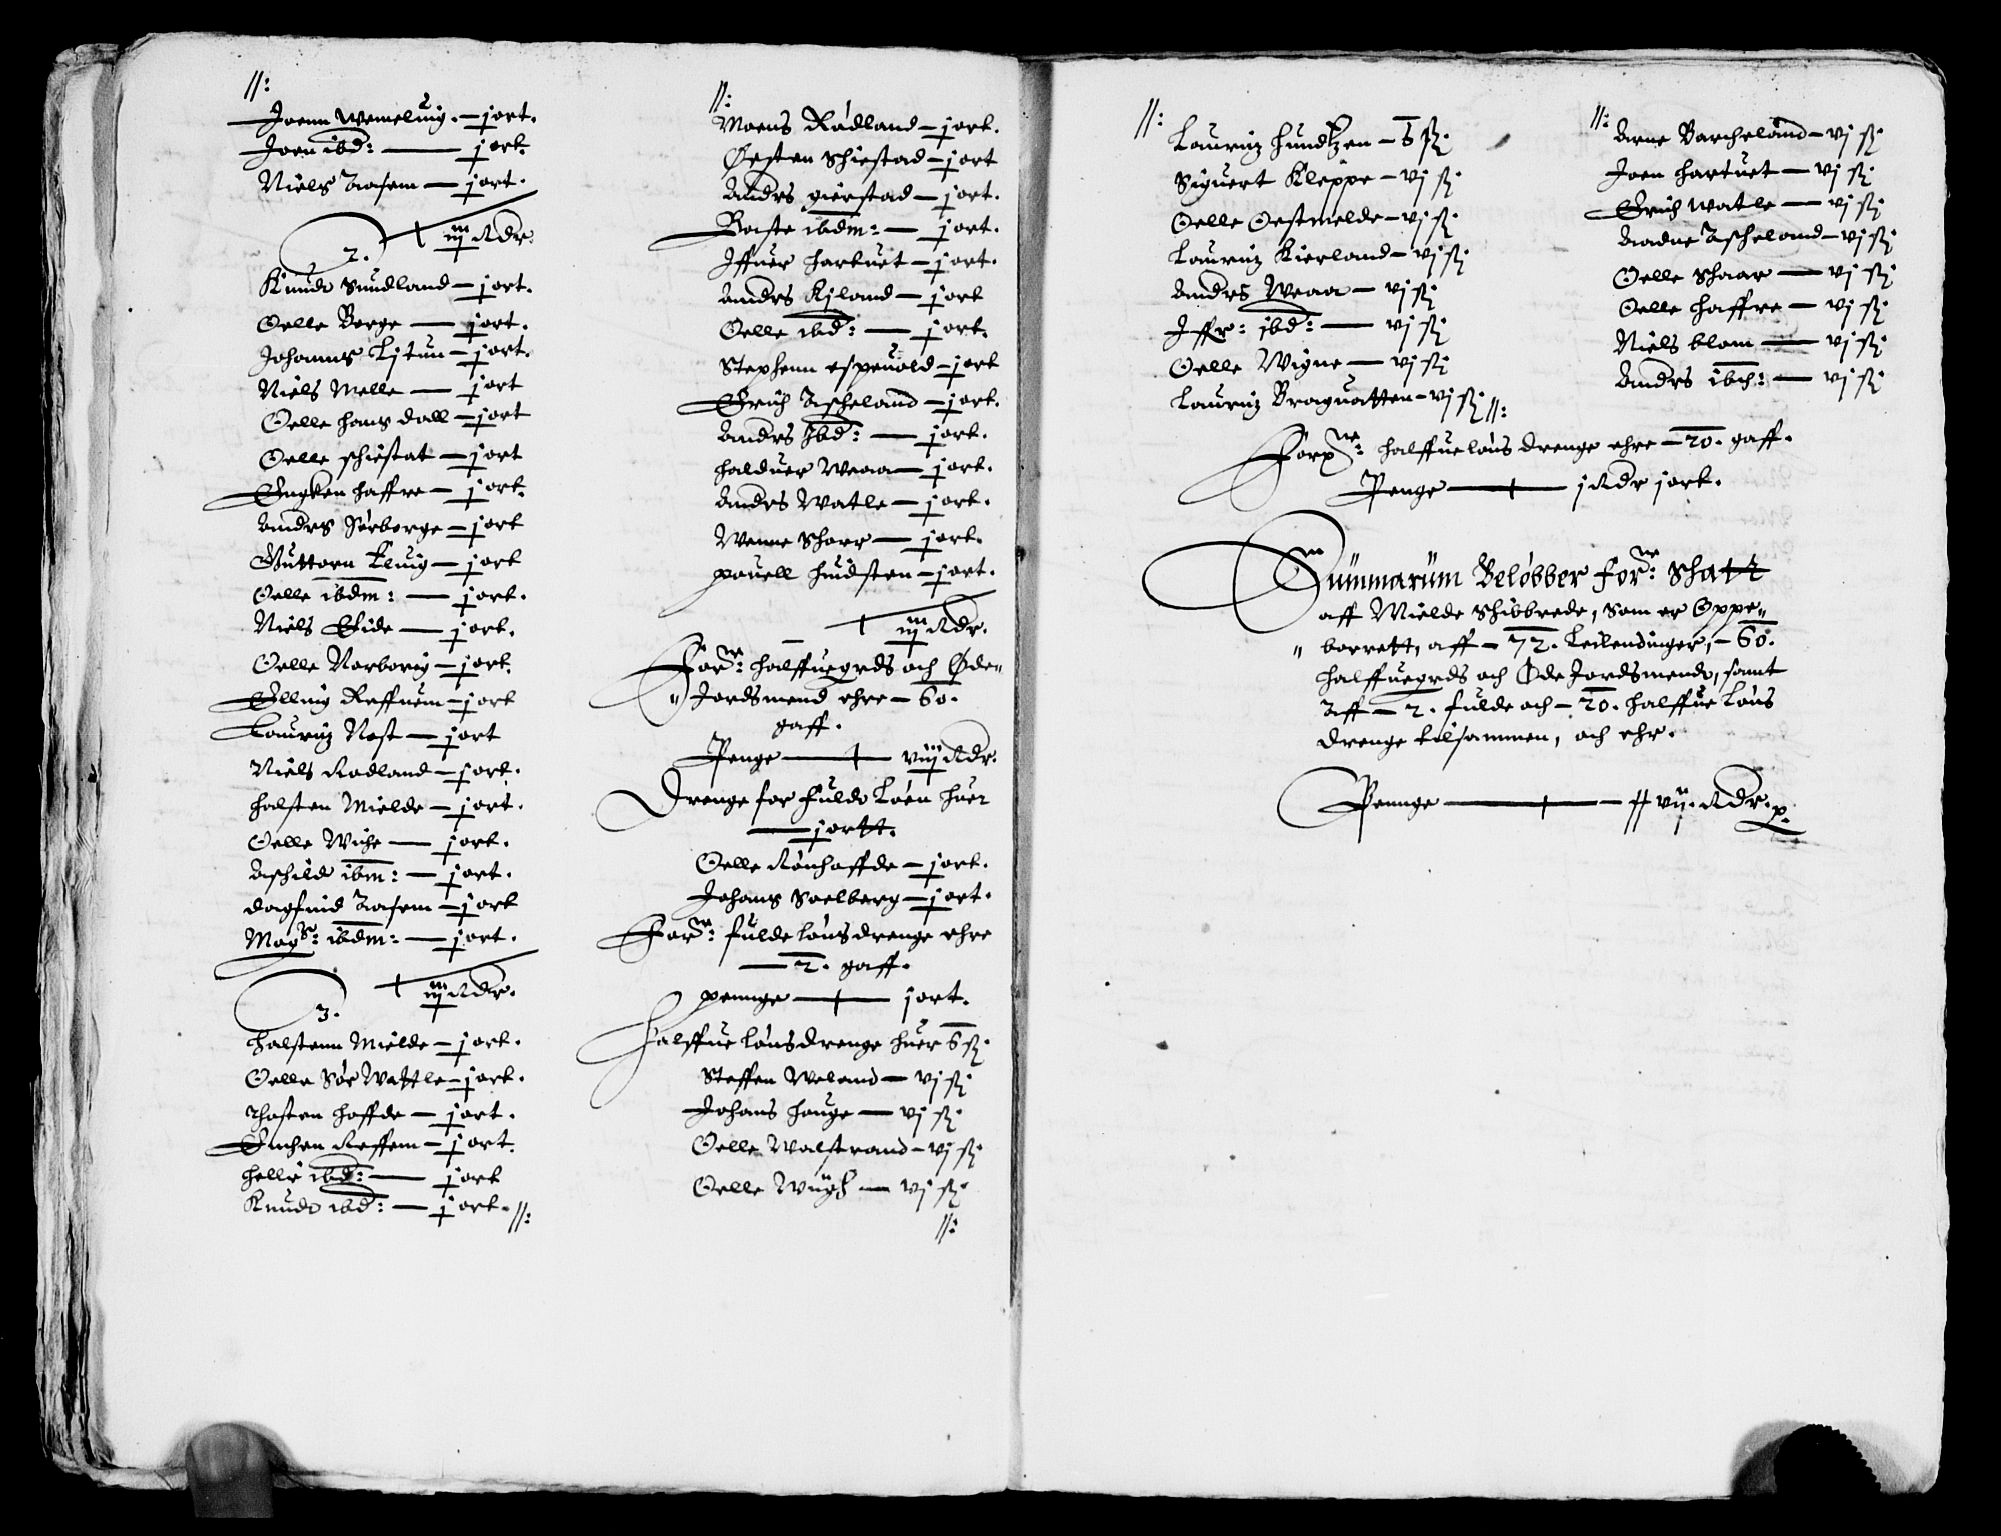 //:
Joenn Wemeluig. — j ort.
Joen ibd: — j ort.
Niels Aasem — j ort.
iij Rdr.
2.
Knud Sundland — j ort.
Oelle Berge — j ort.
Johanns Litun — j ort.
Niels Melle — j ort
Oelle hans dall — j ort
Oelle schiestat — j ort
Engken haffre — j ort.
Anders Sørberge — j ort
Guttorn Eluig — j ort
Oelle ibdm: — j ort.
Niels Eide — j ort.
Oelle Norborig — j ort.
Elling Reffnem — j ort
Lauritz Nest — j ort
Niels Rodland — j ort.
Halsten Mielde — j ort.
Oelle Wiche — j ort.
Aschild ibm: — j ort.
dagfind Aasem — j ort
Mogs: ibdm: — j ort.
iij Rdr.
3.
Halstenn Mielde — j ort.
Oelle Sør Wattle — j ort.
Thosten hoffde — j ort.
Enchen Reffem — j ort.
helle ibd: — j ort
Knud ibd: — j ort. //:
//:
Moens Rødland — j ort.
Østen Schiestad — j ort
Anders gierstad — j ort.
Baste ibdm: — j ort.
Iffuer hartuet — j ort.
Anders Kiland — j ort
Oelle ibd: — j ort.
Stephenn espeuold — j ort
Erich Ascheland — j ort.
Anders Ibd: — j ort.
halduer Weaa — j ort.
Anders Watle — j ort.
Wenne Skarr — j ort.
pouell hundsten — j ort.
iij Rdr.
Forne: halffuegrds och Øde„
„ Jordsmend ehre — 60.
gaff.
Penge — viij Rdr.
Drenge for fuld Løen huer
— j ortt.
Oelle Rønhoffde — j ort.
Johans Soelberg — j ort.
Forne: fulde løns drenge ehre
— 2. gaff.
pennge — j ort.
Halffue lønsdrenge huer 6 ß.
Steffen Weland — vj ß
Johans houge — vj ß
Oelle Walstrand — vj ß
Oelle Wugh — vj ß
//:
//:
Lauritz hundtzen — 6 ß.
Siguert Kleppe — vj ß
Oelle Oestmelde — vj ß
Lauritz Kierland — vj ß
Anders Weaa — vj ß
Iffr: ibd: — vj ß
Oelle Wigne — vj ß
Lauritz Braguatten — vj ß //:
//:
Arne Barcheland — vj ß
Joen hartuet — vj ß
Erich Watle — vj ß
Aadne Ascheland — vj ß
Oelle Skaar — vj ß
Oelle haffre — vj ß
Niels blom — vj ß
Anders ibd: — vj ß
Forne: halffue løns drenge ehre — 20. gaff.
Penge — j Rdr j ort.
Summarum Beløbber forne: Schatt
aff Mielde Schibbrede, Som er Oppe„
„ borrett, aff — 72. Leilendinger, — 60.
halffuegrds och Øde Jordsmend, samt
Aff — 2. fulde och — 20. halffue løns
drenge tilsammen, och ehr.
Pennge — vij. Rdr.